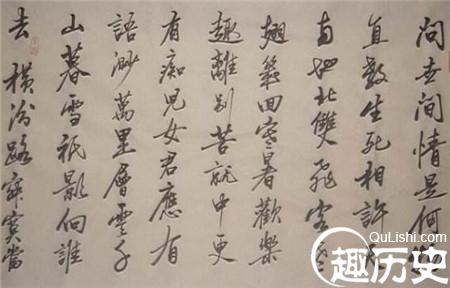 問世間情是何物
直教生死相許天
南地北雙飛客老
翅幾回寒暑歡樂
趣離別苦就中更
有痴兒女君應有
語渺萬里層雲千
山暮雪祇影向誰
去橫汾路寂寞當
QuLishi.com
趣历史